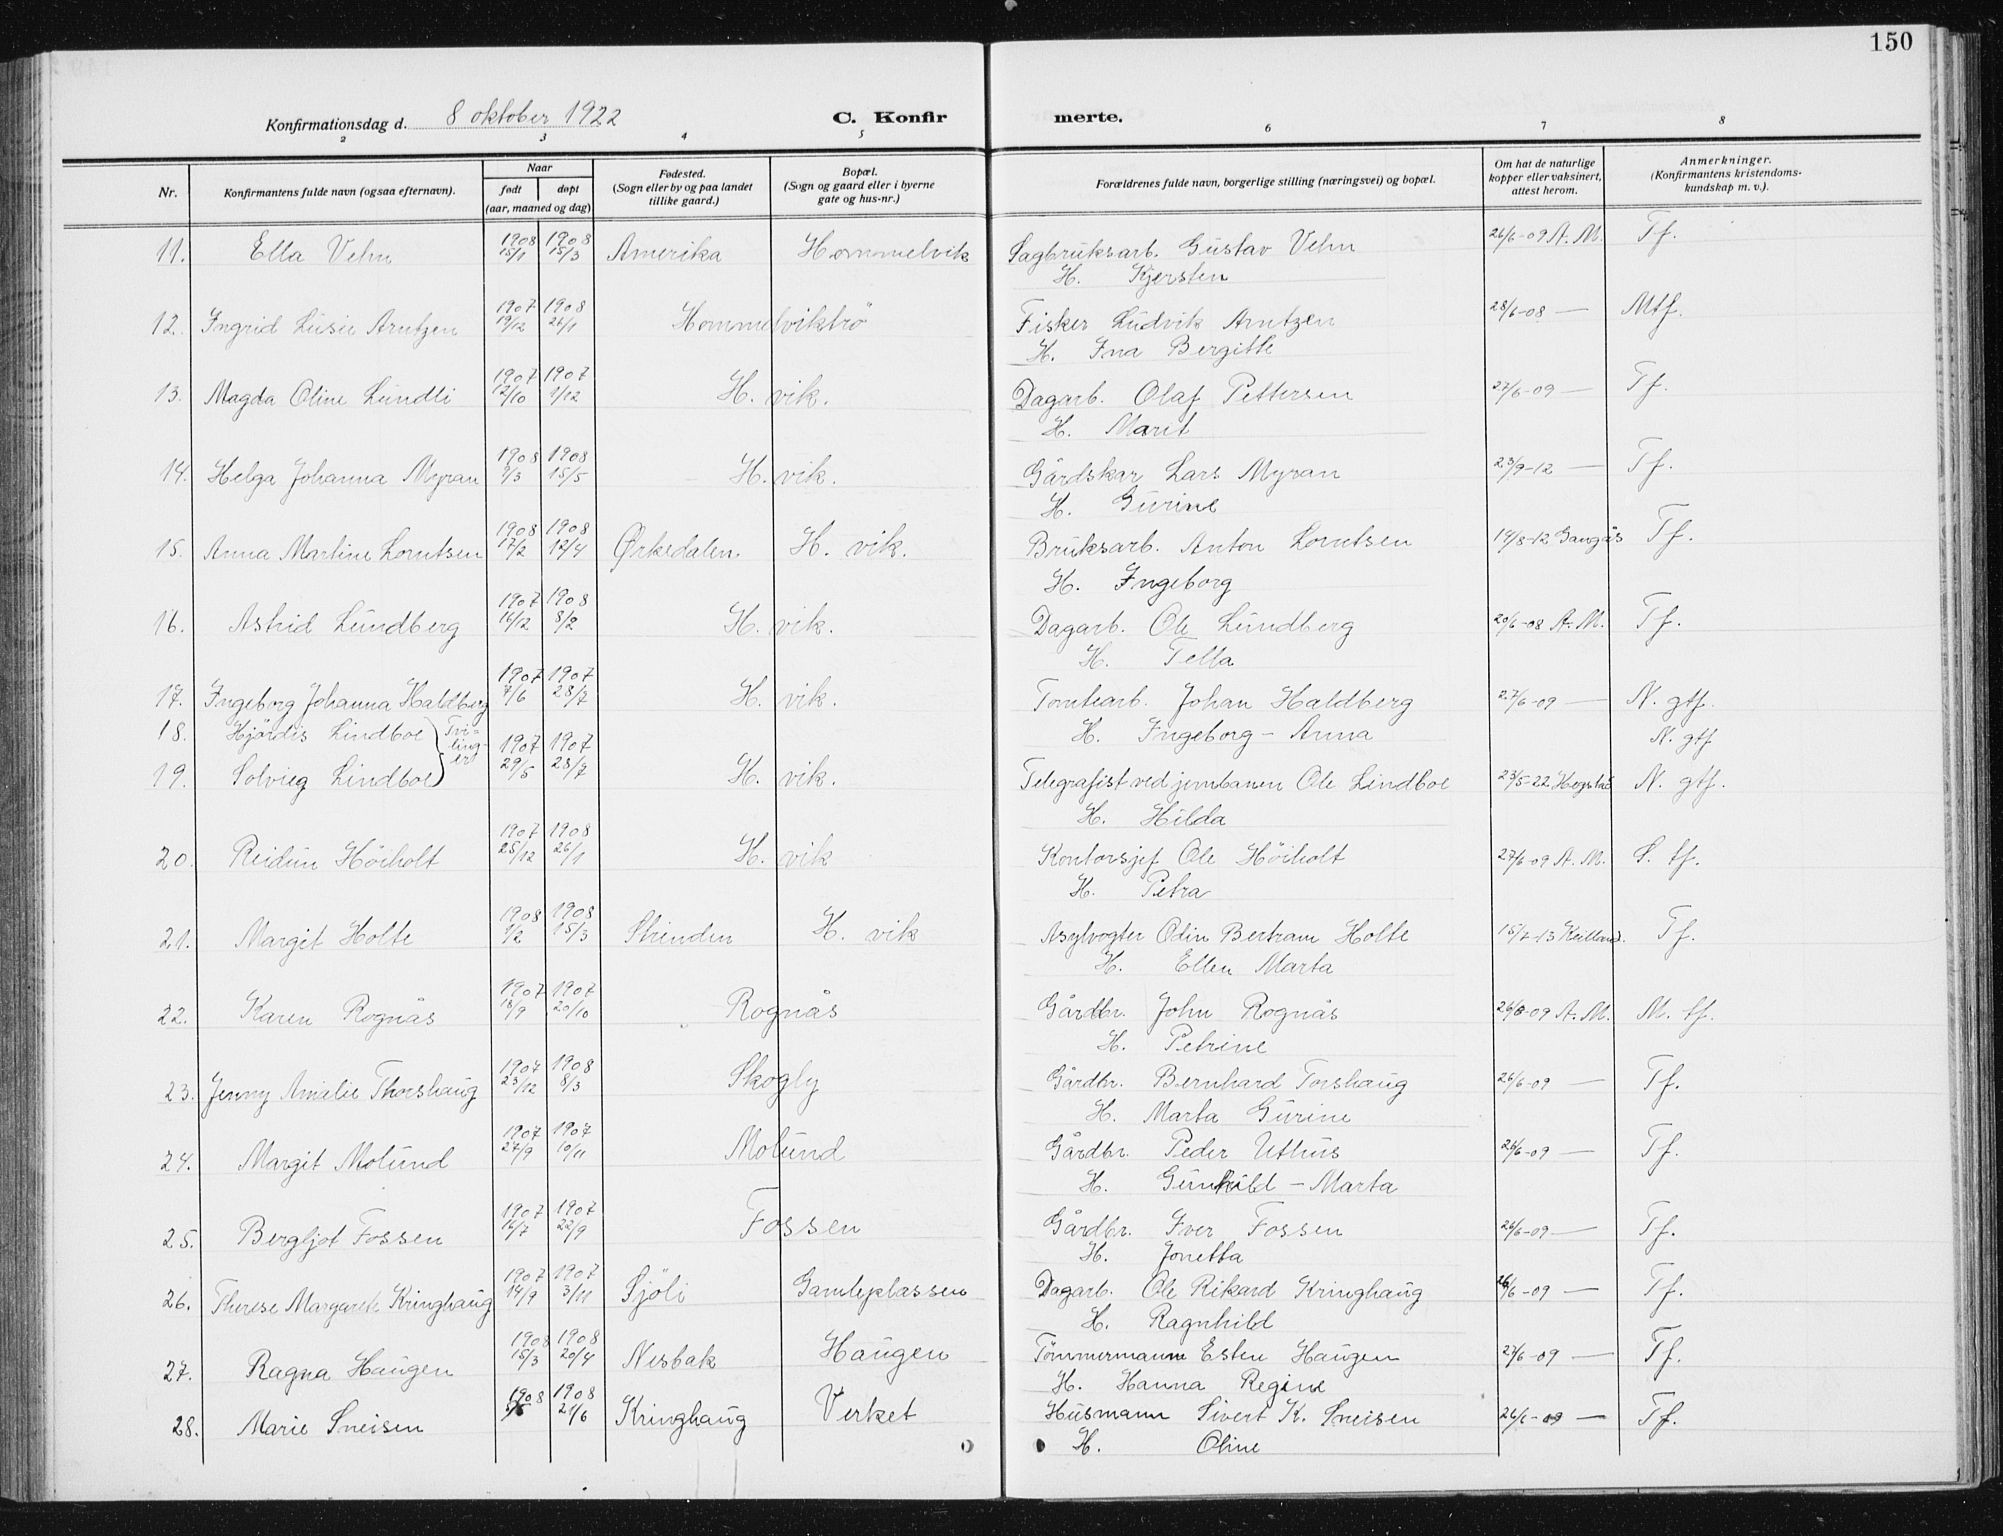 150
Konfirmationsdag d. 8 oktober 1922 C. Konfirmerte.
2 3 4 5 6 7 8
Nr. Konfirmantens fulde navn (ogsaa efternavn). Naar født døpt (aar, maaned og dag) Fødested. (Sogn eller by og paa landet tillike gaard.) Bopæl. (Sogn og gaard eller i byerne gate og hus-nr.) Forældrenes fulde navn, borgerlige stilling (næringsvei) og bopæl. Om hat de naturlige kopper eller vaksinert, attest herom. Anmerkninger. (Konfirmantens kristendomskundskap m. v.).
11. Ella Vehn 1908 15/1 1908 15/3 Amerika Hommelvik Sagbruksarb. Gustav Vehn 26/6-09 A. M. Tf.
H. Kjersten
12. Ingrid Lusie Arntzen 1907 19/12 1908 26/1 Hommelviktrö Fisker Ludvik Arntzen 28/6-08 — Mtf.
H. Ina Bergitte
13. Magda Oline Lundli 1907 12/10 1907 1/12 H. vik. Dagarb. Olaf Pettersen 27/6-09 — Tf.
H. Marit
14. Helga Johanna Myran 1908 9/3 1908 15/5 H. vik. Gårdskar Lars Myran 23/9-12 — Tf.
H. Gurine
15. Anna Martine Lorntsen 1908 17/2 1908 12/4 Ørkedalen. H. vik. Bruksarb. Anton Lorntsen 19/8-12 Gangås Tf.
H. Ingeborg
16. Astrid Lundberg 1907 16/12 1908 8/2 H. vik. Dagarb. Ole Lundberg 20/6-08 A. M. Tf.
H. Tella
17. Ingeborg Johanna Haldberg 1907 7/6 1907 28/7 H. vik. Tomtearb. Johan Haldberg 27/6-09 — N. gtf.
18. Hjördis Lindboe } Tvilinger H. Ingeborg - Anna N. gtf
19. Solvieg Lindboe 1907 29/5 1907 28/7 H. vik. Telegrafist ved jernbanen Ole Lindboe 23/5-22 Hegstad N. gtf.
H. Hilda
20. Reidun Höiholt 1907 25/12 1908 26/1 H. vik Kontorsjef Ole Höiholt 27/6-09 A. M. S. tf.
H. Petra
21. Margit Holte 1908 1/2 1908 15/3 Strinden H. vik Asylvogter Odin Bertram Holte 15/7-13 Tf.
H. Ellen Marta
22. Karen Rognås 1907 18/9 1907 20/10 Rognås Gårdbr. John Rognås 26/6-09 A. M. M. tf.
H. Petrine
23. Jenny Amelie Thorshaug 1907 23/12 1908 8/3 Skogly Gårdbr. Bernhard Torshaug 26/6-09 — Tf.
H. Marta Gurine
24. Margit Molund 1907 27/9 1907 10/11 Molund Gårdbr. Peder Uthus 26/6-09 — Tf.
H. Gunhild - Marta
25. Bergljot Fossen 1907 16/7 1907 22/9 Fossen Gårdbr. Iver Fossen 26/6-09 — Tf.
H. Jonetta
26. Therese Margarete Kringhaug 1907 14/9 1907 3/11 Sjöli Gamleplassen Dagarb. Ole Rikard Kringhaug 26/6-09 — Tf.
H. Ragnhild
27. Ragna Haugen 1908 15/3 1908 20/4 Nesbak Haugen Tömmermann Esten Haugen 27/6-09 — Tf.
H. Hanna Regine
28. Marie Sneisen 1908 1908 21/6 Kringhaug Verket Husmann Sivert K. Sneisen 26/6-09 — Tf.
H. Oline